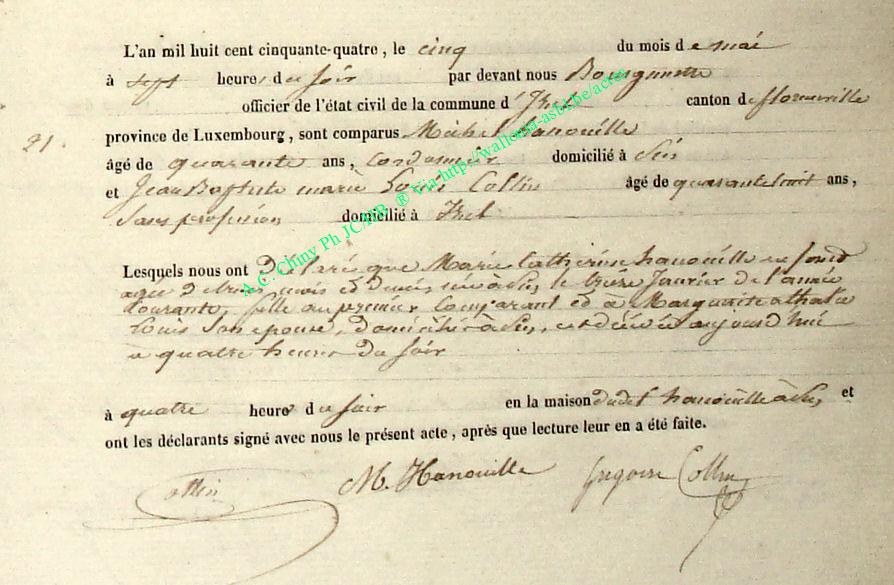 L'an mil huit cent cinquante-quatre, le cinq du mois de mai
à sept heures du soir par devant nous Bourgmestre
officier de l'état civil de la commune d'Izel canton de florenville
21. province de Luxembourg, sont comparus Michel hanouille
âgé de quarante ans, Cordonnier domicilié à
et Jean Baptiste marie Louis Collin âgé de quarante huit ans,
Sans profession domicilié à Izel
Lesquels nous ont Déclaré que Marie Catherine hanouille enfant
agée De trois mois et demi née à le Janvier De l'année
Courante, fille au premier Comparant et à Marguerite athalie
Louis Son épouse, Domiciliée à est décédée aujourd'hui
à quatre heures Du Soir
à quatre heures du soir en la maison dudit hanouille à et
ont les déclarants signé avec nous le présent acte, après que lecture leur en a été faite.
Collin M. Hanouille Gregoire Collin
A.C. Chiny Ph JC.RB. ® Via http://wallonia-asbl.be/actes